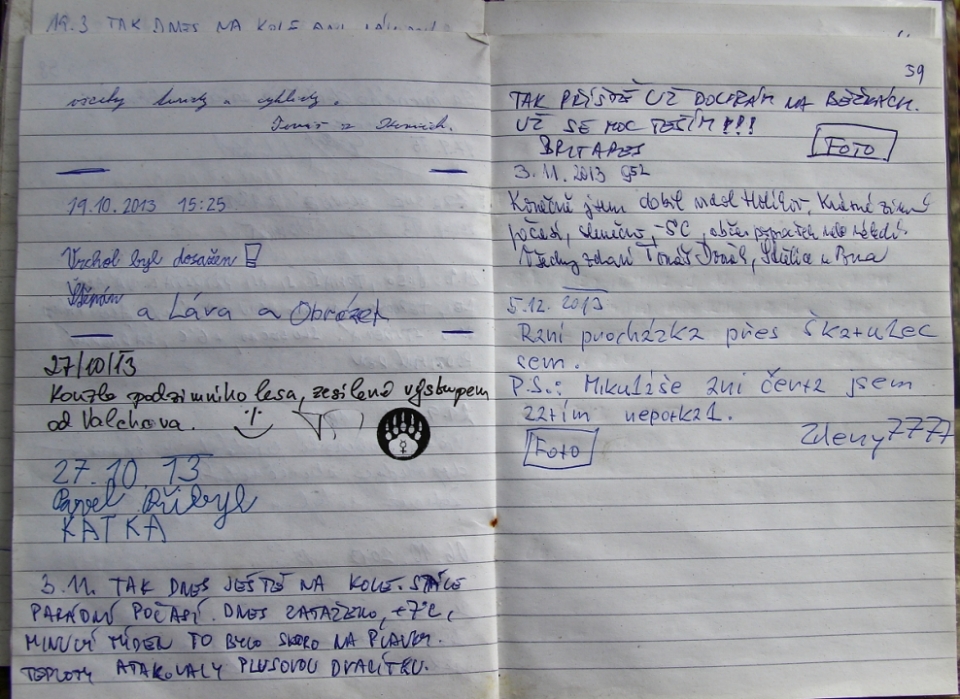 19.3 TAK DNES NA KOLE
všechy a výhledy.
Tomáš z
19.10.2013 15:25
Vrchol byl dosažen!
Štěpán a Láva a Obrázek
27/10/13
Kouzlo podzimního lesa, zesílené výstupem
od Valchova.
27.10.13
Pavel Přibyl
KATKA
3.11. TAK DNES JEŠTĚ NA KOLE. STÁLE
PARÁDNÍ POČASÍ. DNES ZATAŽENO, +7°C,
MINULÝ TÝDEN TO BYLO SKORO NA PLAVKY.
TEPLOTY ATAKOVALY PLUSOVOU DVACÍTKU.
59
TAK PŘÍŠTĚ UŽ DOUFÁM NA BĚŽKÁCH.
UŽ SE MOC TĚŠÍM!!!
FOTO
3.11.2013
Konečně jsem dobyl Krásné zimní
počasí, slunečno, -5°C, občas
Všechny zdraví Tomáš
5.12.2013
Ranní procházka přes Škatulec
sem.
P.S.: Mikuláše ani čerta jsem
zatím nepotkal.
Zdeny7777
FOTO